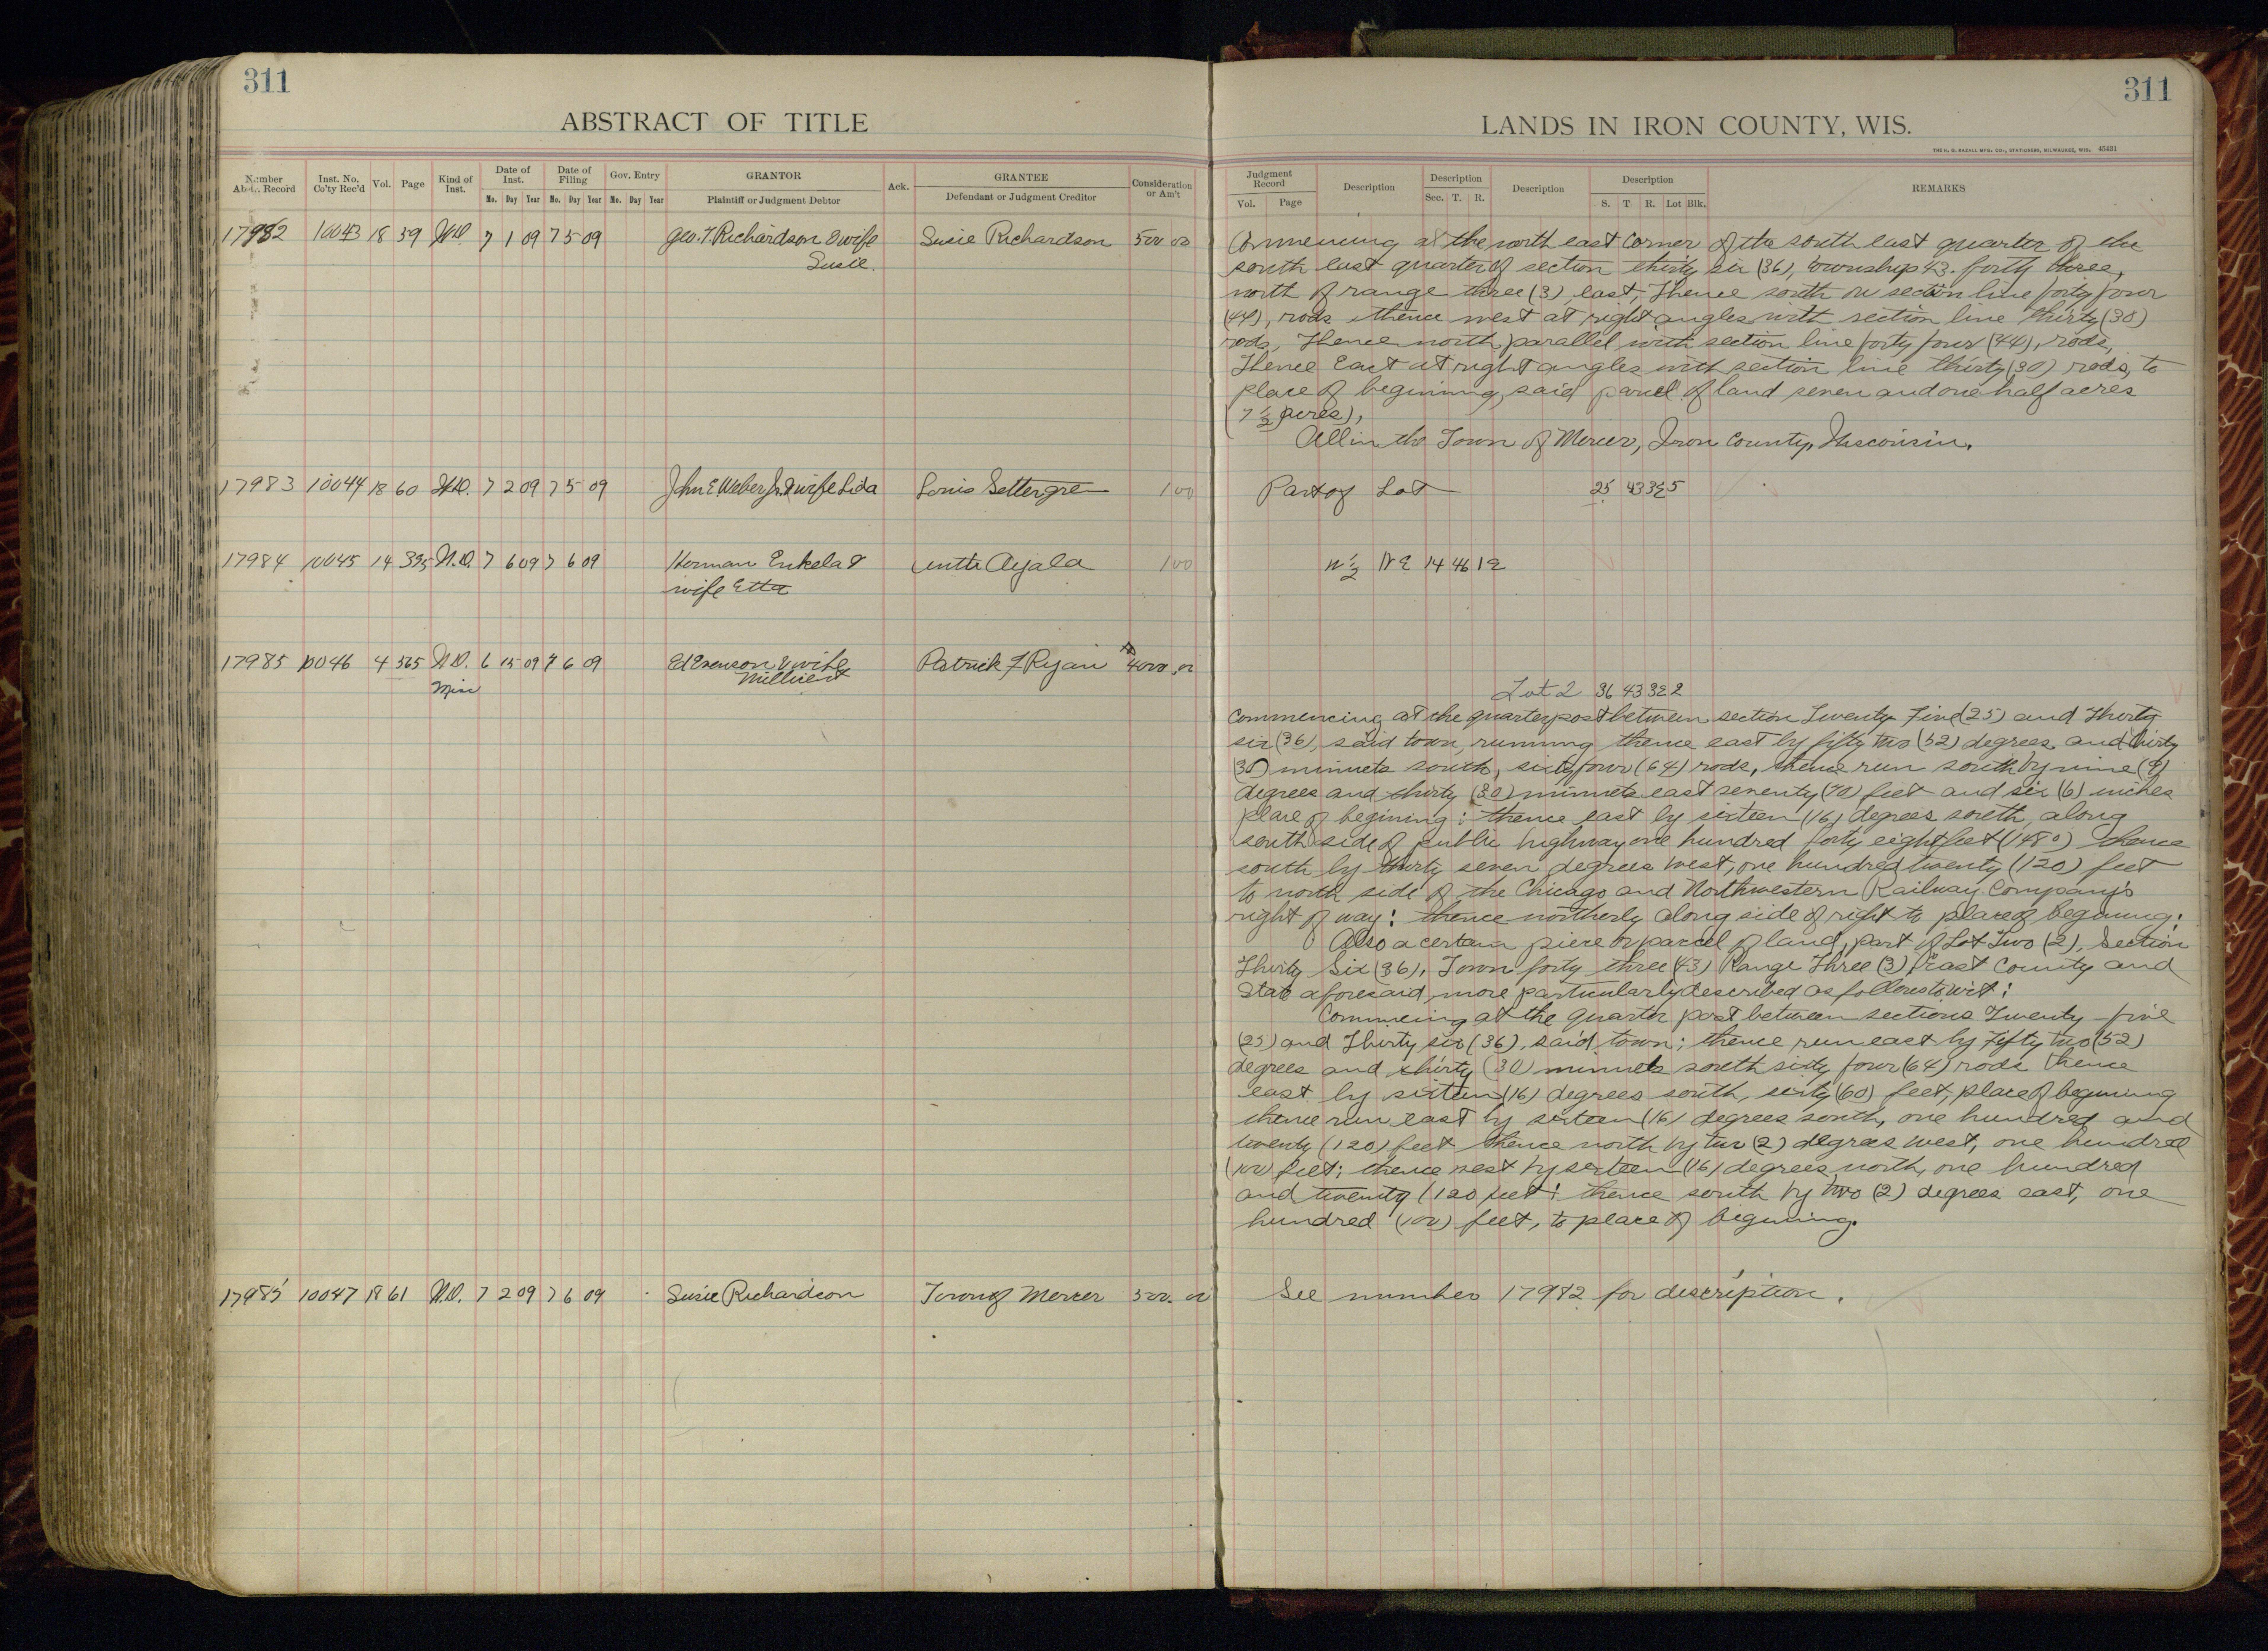 311
ABSTRACT OF TITLE
Number Abst. Record Inst. No. Co'ty Rec'd Vol. Page Kind of Inst. Date of Inst. Date of Filing Gov. Entry GRANTOR Ack. GRANTEE Consideration or Am't
Mo. Day Year Mo. Day Year Mo. Day Year Plaintiff or Judgment Debtor Defendant or Judgment Creditor
17982 10043 18 59 W.D. 7 1 09 7 5 09 Geo. T. Richardson & wife Susie Richardson 500 00
Susie.
17983 10044 18 60 W.D. 7 2 09 7 5 09 John E Weber Jr. & wife Lida Louis Settergren 1 00
17984 10045 14 395 W.D. 7 6 09 7 6 09 Herman Enkela & Antti Ajala 1 00
wife Etta
17985 10046 4 565 W.D. 6 15 09 7 6 09 Ed Evenson & wife Patrick F Ryan 4000.00
Misc Millicent
17985 10047 18 61 W.D. 7 2 09 7 6 09 Susie Richardson Town of Mercer 500. 00
311
LANDS IN IRON COUNTY, WIS.
45431
Judgment Record Description Description Description Description REMARKS
Vol. Page Sec. T. R. S. T. R. Lot Blk.
Commencing at the north east corner of the south east quarter of the
south east quarter of section thirty six (36), township 43. forty three,
north of range three (3) east, Thence south on section line forty four
(44), rods thence west at right angles with section line thirty (30)
rods, Thence north, parallel with section line forty four (44), rods,
Thence East at right angles with section line thirty (30) rods, to
place of beginning, said parcel of land seven and one half acres
(7 1/2 acres),
All in the Town of Mercer, Iron County, Wisconsin.
Part of Lot 25 43 3E 5
N 1/2 NE 14 46 1E
Lot 2 36 43 3E 2
Commencing at the quarter post between section Twenty Five (25) and Thirty
six (36), said town, running thence east by fifty two (52) degrees and thirty
(30) minnets south, sixty four (64) rods, thence run south by nine (9)
degrees and thirty (30) minnets east seventy (70) feet and six (6) inches
place of begining: thence east by sixteen (16) degrees south, along
south side of public highway one hundred forty eight feet (148) thence
south by thirty seven degrees west, one hundred twenty (120) feet
to north side of the Chicago and Northwestern Railway Company's
right of way: thence northerly along side of right to place of beginning:
Also a certain piece or parcel of land, part of Lot Two (2), Section
Thirty Six (36), Town forty three (43) Range Three (3) East County and
State aforesaid, more particularly described as follows to wit:
Commencing at the quarter post between sections Twenty five
(25) and Thirty six (36), said town; thence run east by Fifty two (52)
degrees and thirty (30) minnets south sixty four (64) rods thence
east by sixteen (16) degrees south, sixty (60) feet, place of beginning
thence run east by sixteen (16) degrees south, one hundred and
twenty (120) feet thence north by two (2) degrees west, one hundred
(100) feet; thence west by sixteen (16) degrees north, one hundred
and twenty (120 feet: thence south by two (2) degrees east, one
hundred (100) feet, to place of beginning.
See number 17982 for description.